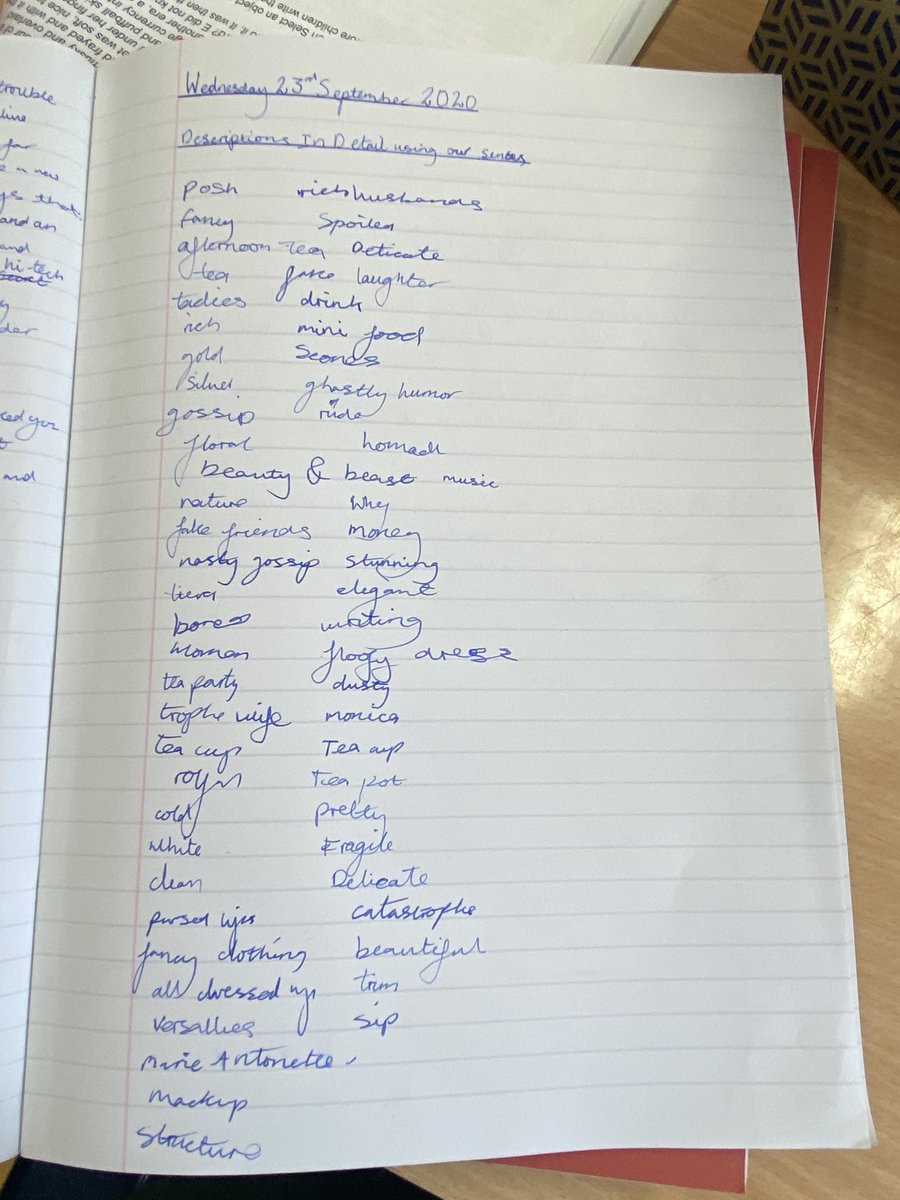 ure children write the
on Select an object
trouble
line
for
e a new
ys that
and an
and
hi-tech
secret
and
Wednesday 23rd September 2020
Descriptions In Detail using our senses
posh rich husbands
fancy Spoiled
afternoon tea Delicate
tea fake laughter
ladies drink
rich mini food
gold Scones
silver ghastly humor
gossip rude
floral
beauty & beast music
nature Why
fake friends money
nasty gossip stunning
tiera elegant
bored writing
women frogy dress
tea party dusty
trophe wife monica
tea cup Tea cup
Tea pot
cold pretty
white Fragile
clean Delicate
pursed lips catastrophe
fancy clothing beautiful
all dressed up trim
Versallies sip
Marie Antonette
Mackup
Structure